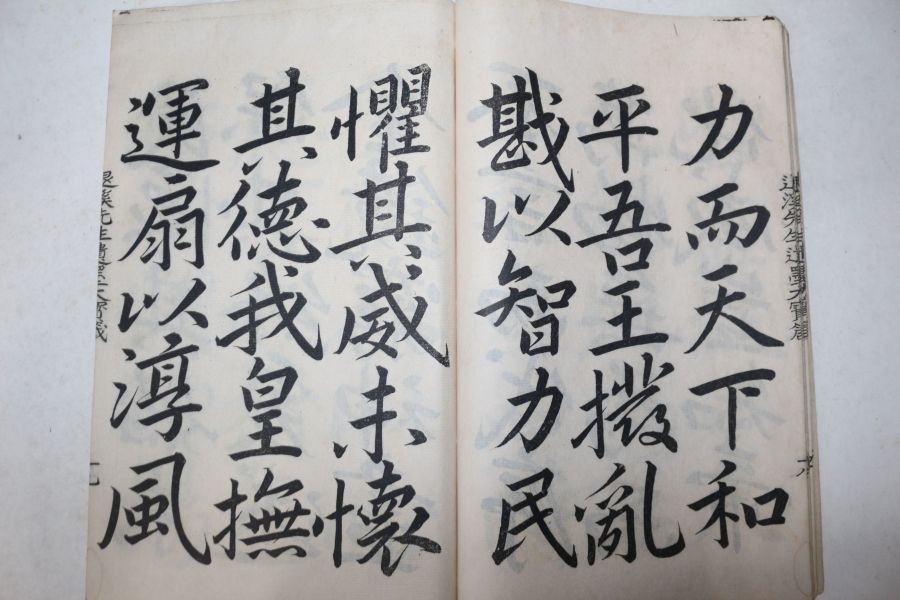 力而天下和
平吾王撥亂
戡以智力民
懼其威未懷
其德我皇撫
運扇以淳風
退溪先生遺墨大寶箴
退溪先生遺墨大寶箴